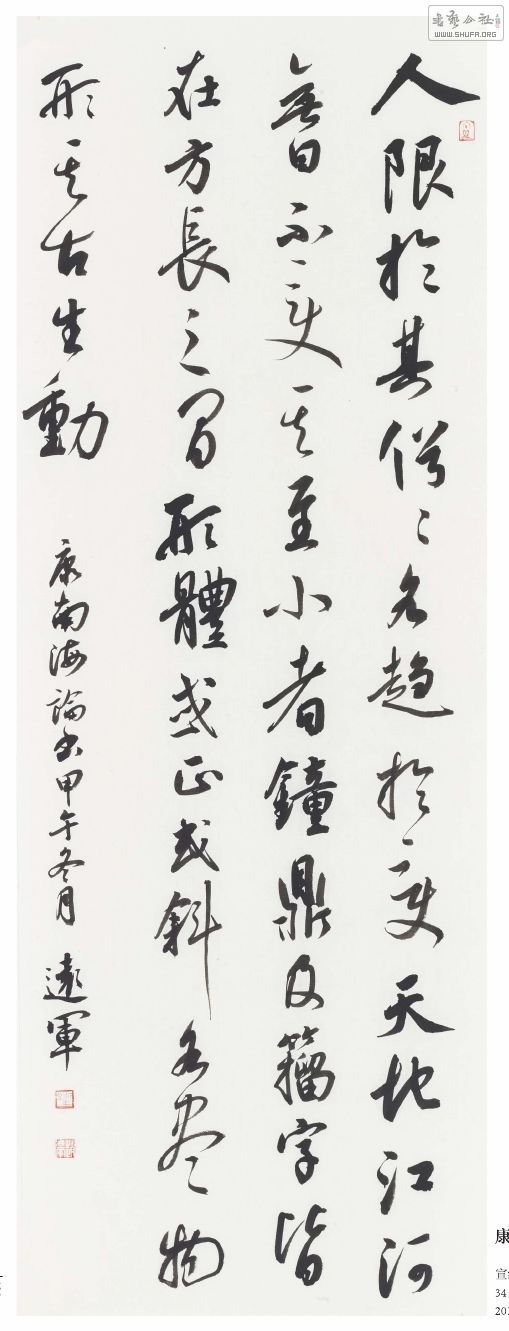 書藝公社
WWW.SHUFA.ORG
人限於其俗〻各趨於變天地江河
無日不變其至小者鐘鼎及籀字皆
在方長之間形體或正或斜各盡物
形其古生動
康南海論書甲午冬月 遠軍
康
宣
34
20